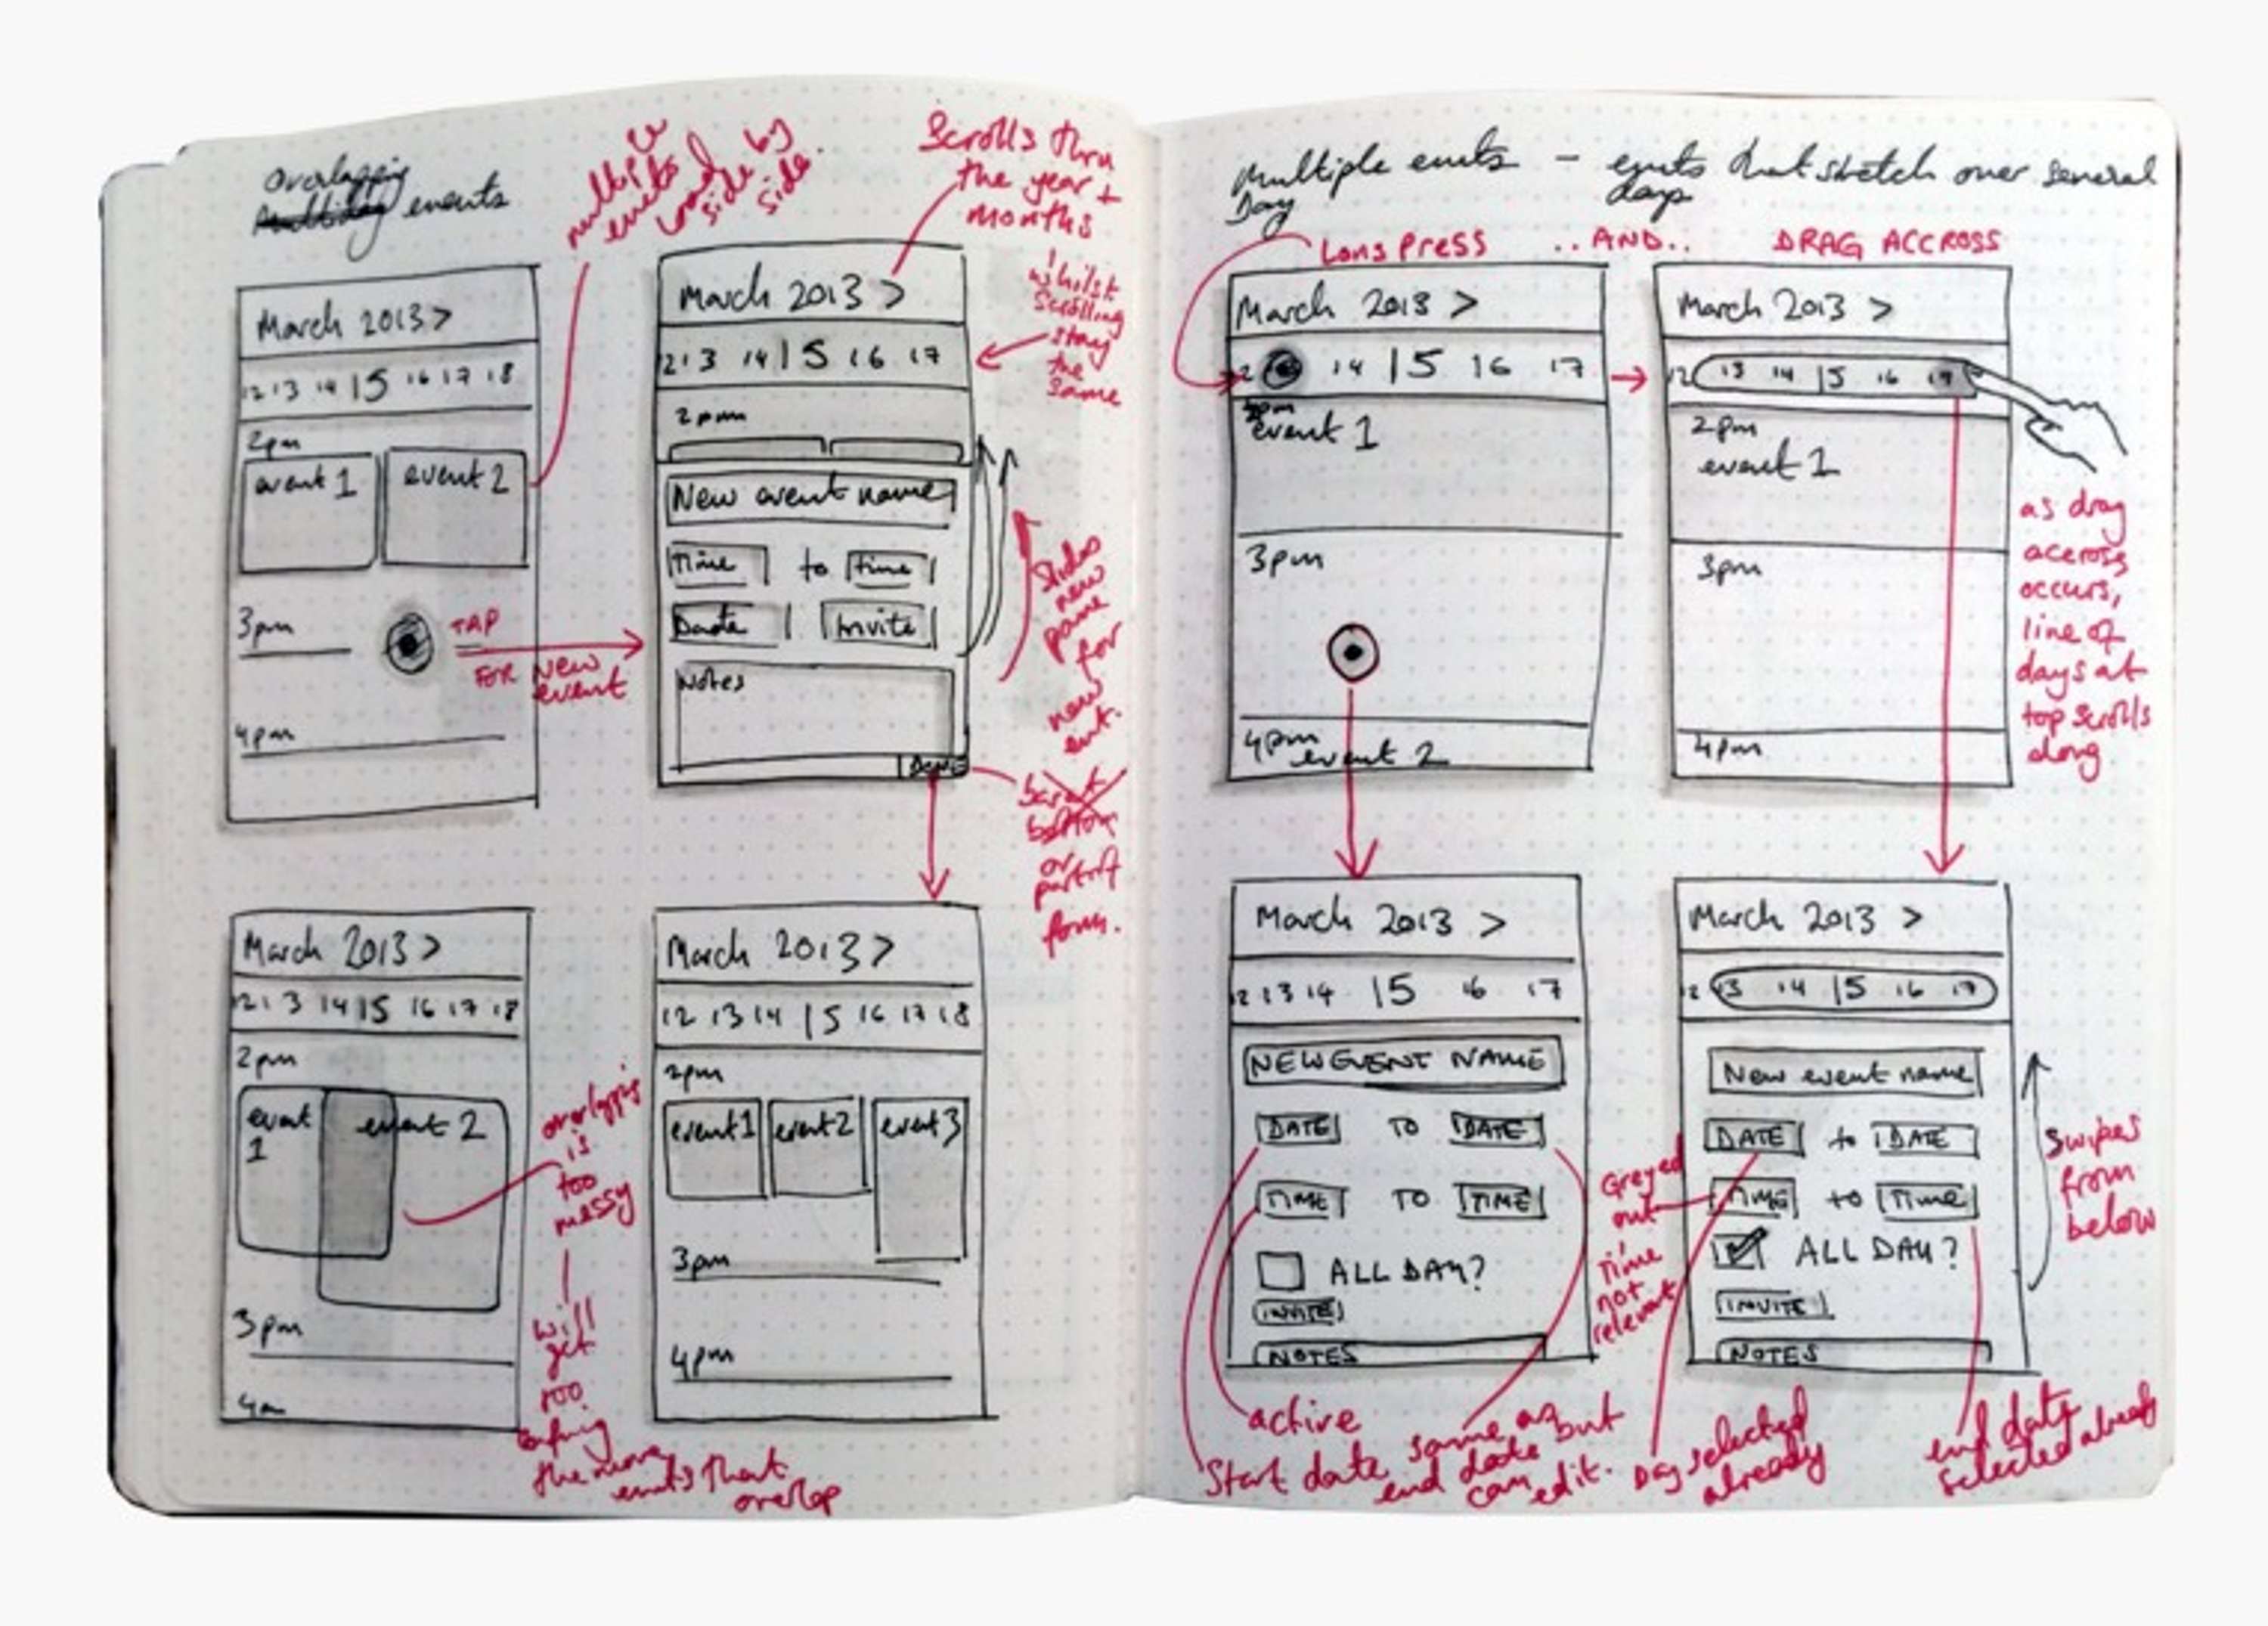 Overlapping
events
multiple
events
side by
side.
Scrolls thru
the year +
months
whilst
scrolling
stay
the
same
March 2013 >
12 13 14 15 16 17 18
2pm
event 1
event 2
3pm
TAP
FOR NEW
event
4pm
March 2013 >
12 13 14 15 16 17
2pm
New event name
Time to time
Date Invite
Notes
DONE
slides
new
pane
for
new
evnt.
button
or
part of
form.
March 2013 >
12 13 14 15 16 17 18
2pm
event
1
event 2
3pm
overlapping
is
too
messy
will
get
too
the more
events that
overlap
March 2013 >
12 13 14 15 16 17 18
2pm
event 1 event 2 event 3
3pm
4pm
Multiple events - events that stretch over several
Day
days
LONG PRESS ..AND.. DRAG ACCROSS
March 2013 >
12 14 15 16 17
event 1
3pm
4pm
event 2
March 2013 >
12 13 14 15 16 17
2pm
event 1
3pm
4pm
as drag
accross
occurs,
line of
days at
top scrolls
along
March 2013 >
12 13 14 15 16 17
NEW EVENT NAME
DATE TO DATE
TIME TO TIME
ALL DAY?
INVITE
NOTES
active
Start date
same as but
end date
can edit.
March 2013 >
12 13 14 15 16 17
New event name
DATE to DATE
TIME to Time
ALL DAY?
INVITE
NOTES
Greyed
out
Time
not
relevant
swipes
from
below
Day selected
already
end date
selected already